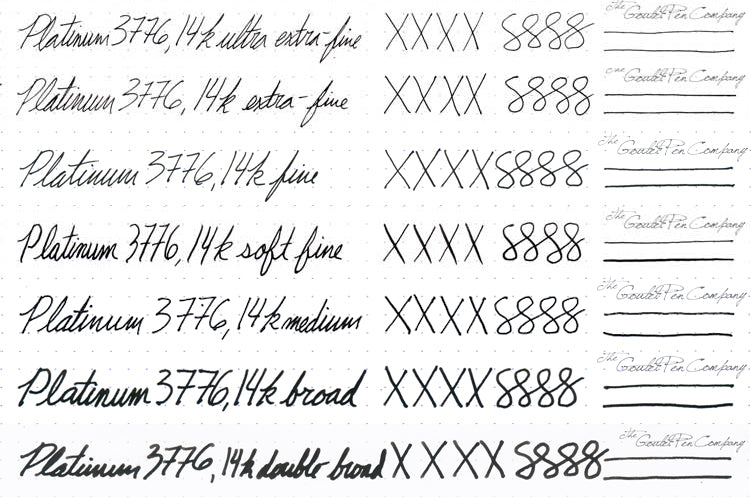 Platinum 3776, 14k ultra extra-fine XXXX 8888 The Goulet Pen Company
Platinum 3776, 14k extra-fine XXXX 8888 The Goulet Pen Company
Platinum 3776, 14k fine XXXX 8888 The Goulet Pen Company
Platinum 3776, 14k soft fine XXXX 8888 The Goulet Pen Company
Platinum 3776, 14k medium XXXX 8888 The Goulet Pen Company
Platinum 3776, 14k broad XXXX 8888 The Goulet Pen Company
Platinum 3776, 14k double broad XXXX 8888 The Goulet Pen Company